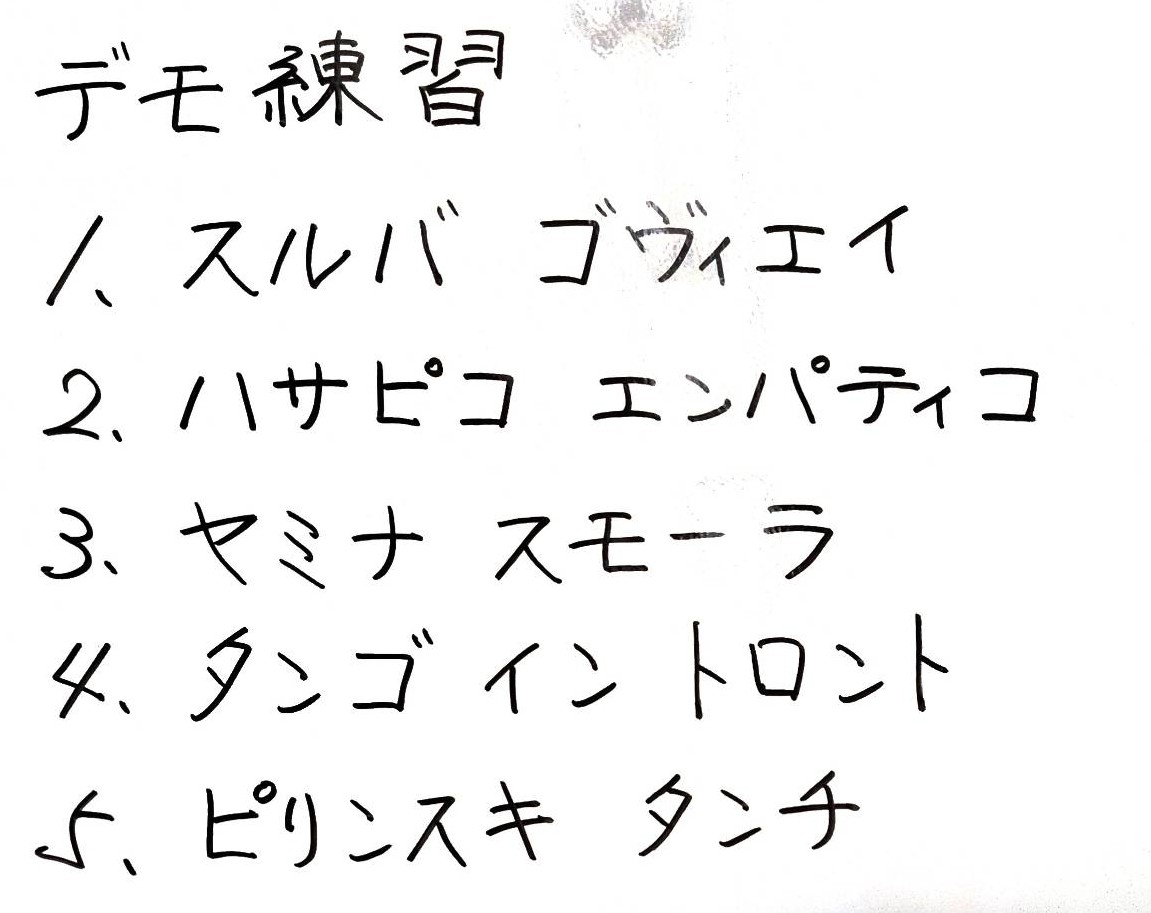 デモ練習
1、スルバ ゴヴィエイ
2、ハサピコ エンパティコ
3、ヤミナ スモーラ
4、タンゴ イン トロント
5、ピリンスキ タンチ